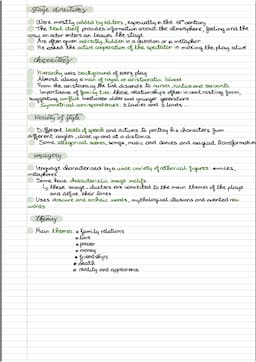 stage directions
Were mostly added by editors, especially in the 18th century
The text itself provides information about the atmosphere, feeling and the
way an actor enters or leaves the stage
Are often given indirectly, hidden in a question or a metaphor
He asks the active cooperation of the spectator in making the play alive
characters
Hierarchy and background of every play
Almost always a man of royal or aristocratic blood
From the aristocracy the list descends to nurses, and servants
Importance of family ties: these relationships often in contrasting form,
suggesting conflict between older and younger generations
Symmetrical correspondences:
Variety of style
Different levels of speech and actions to portray the characters from
different angles, close up and at a distance
Some allegorical scenes, songs, music and dances and magical transformation
imagery
Language characterized by a wide variety of rethorical figures: similes,
metaphores
Some have characteristic image motifs
these image clusters are connected to the main themes of the plays
and define their tones
Uses obscure and archaic words, mythological illusions and invented new
words
themes
Main themes: • family relations
• love
• power
• money
• friendships
• death
• reality and appearance